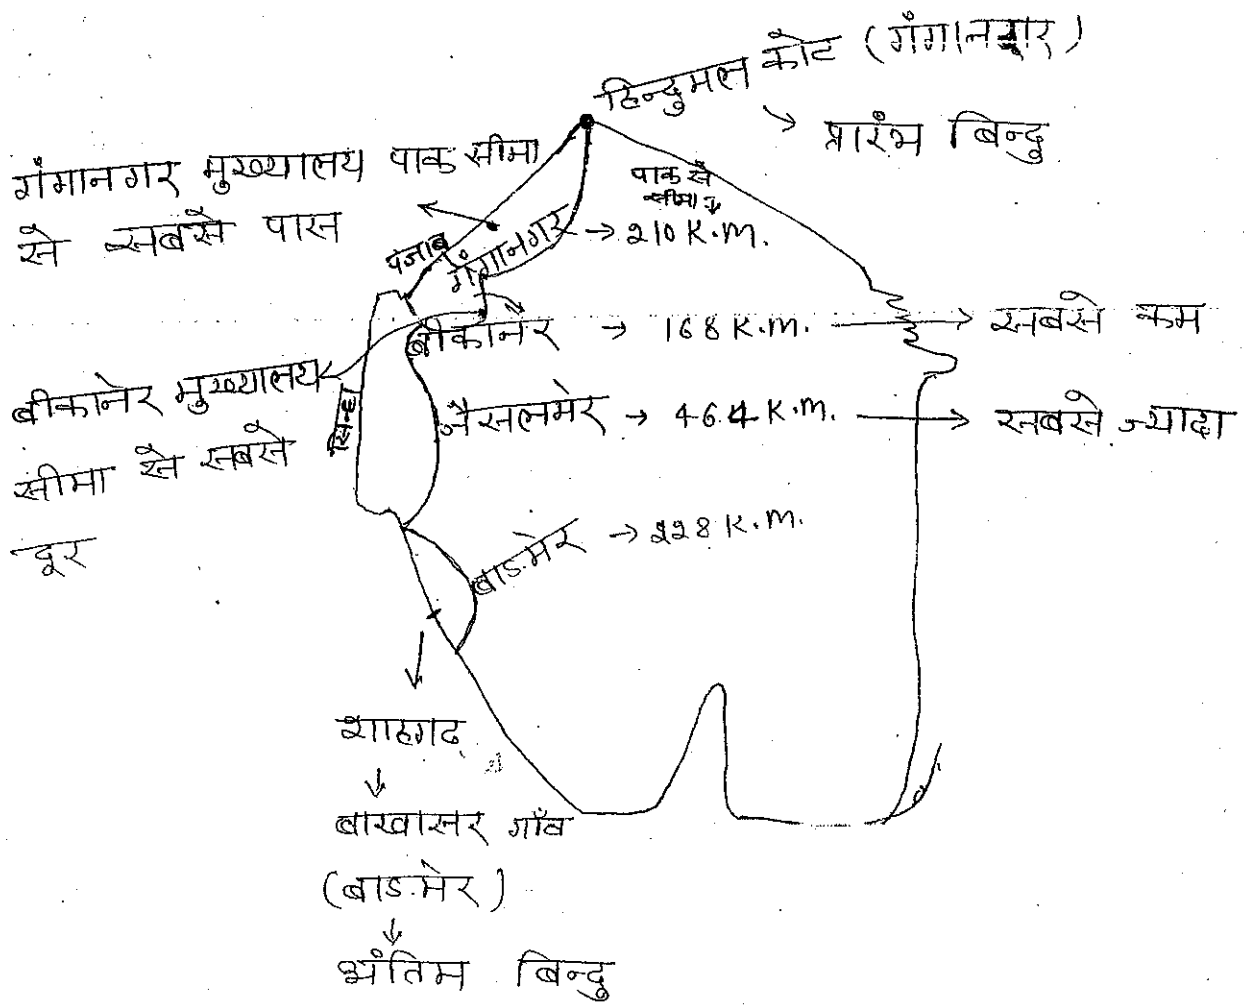 हिन्दुमल कोट (गंगानगर)
→ प्रारंभ बिन्दु
गंगानगर मुख्यालय पाक सीमा
से सबसे पास
पाक से
सीमा
पंजाब
गंगानगर → 210 K.m.
बीकानेर → 168 K.m. → सबसे कम
बीकानेर मुख्यालय
सीमा से सबसे
दूर
सिन्ध
जैसलमेर → 464 K.m. → सबसे ज्यादा
बाड़मेर → 228 K.m.
शाहगढ़
बाखासर गाँव
(बाड़मेर)
अंतिम बिन्दु